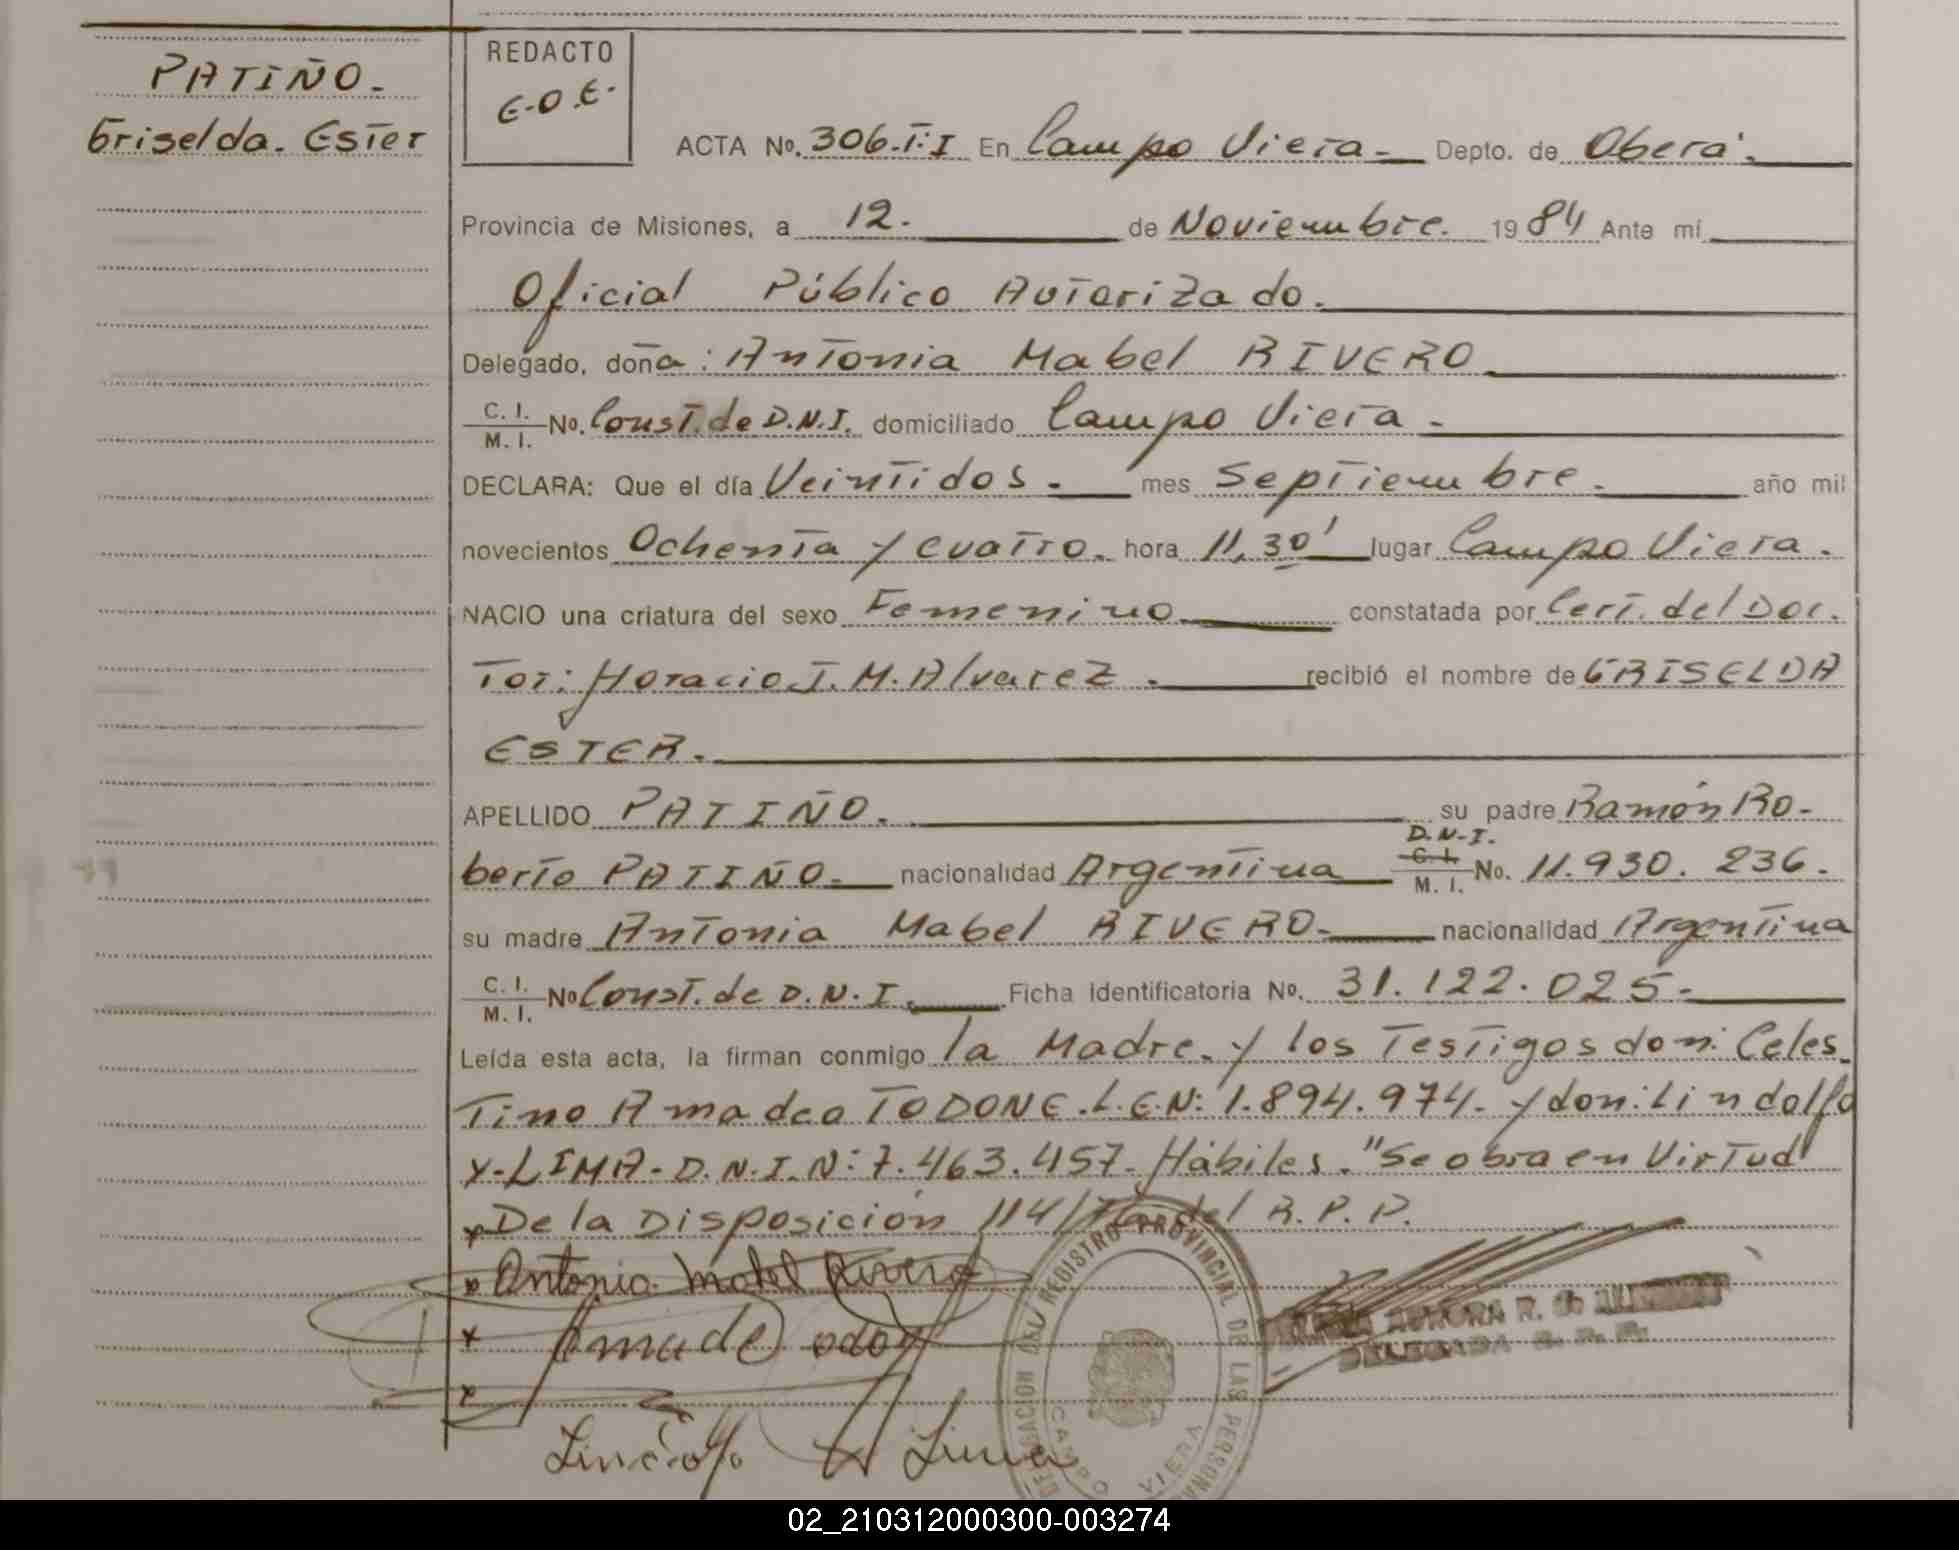 PATIÑO.
Griselda. Ester
REDACTO
E.O.E.
ACTA No. 306.T:I En Campo Viera Depto. de Oberá.
Provincia de Misiones, a 12. de Noviembre. 1984 Ante mí
Oficial Público Autorizado.
Delegado, doña: Antonia Mabel RIVERO
C. I. M. I. No. Const. de D.N.I. domiciliado Campo Viera -
DECLARA: Que el día Veintidos. mes Septiembre. año mil
novecientos Ochenta y cuatro. hora 11,30' lugar Campo Viera.
NACIO una criatura del sexo Femenino constatada por Cert. del Doc.
Tor: Horacio J. M. Alvarez. recibió el nombre de GRISELDA
ESTER.
APELLIDO PATIÑO. su padre Ramón Ro-
D.N.I.
berto PATIÑO. nacionalidad Argentina C. I. M. I. No. 11.930.236.
su madre Antonia Mabel RIVERO. nacionalidad Argentina
C. I. M. I. No Const. de D.N.I. Ficha Identificatoria No. 31.122.025.
Leída esta acta, la firman conmigo la Madre. y los Testigos don: Celes
Tino Amadeo TODONE. L.E.N: 1.894.974. y don: Lindolfo
X-LIMA-D.N.I.N: 7.463.457. Hábiles. "Se obra en Virtud
De la Disposición 114/ del R.P.P.
Antonia Mabel Rivero
DELEGACION DEL REGISTRO PROVINCIAL DE LAS PERSONAS
CAMPO VIERA
AURORA R. DE
DELEGADA R. P. P.
Lima
02_210312000300-003274